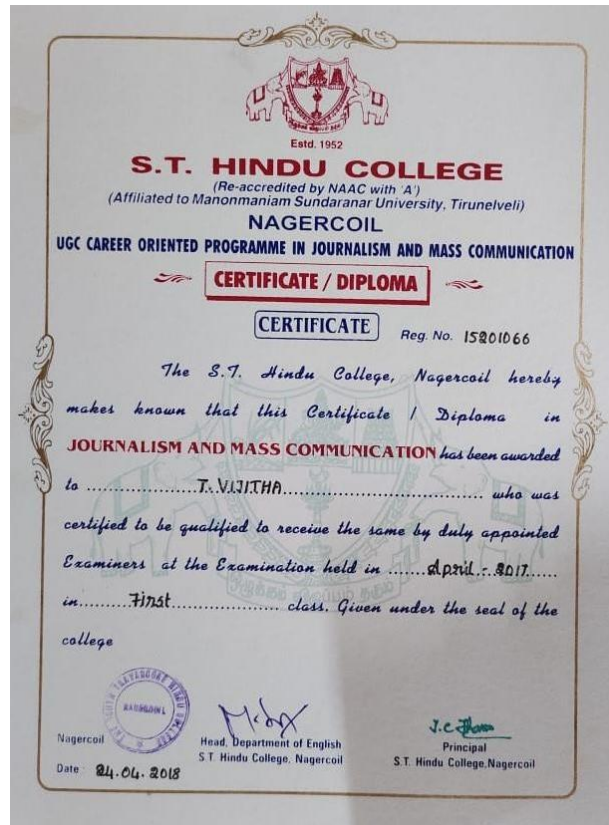 Estd. 1952
S.T. HINDU COLLEGE
(Re-accredited by NAAC with 'A')
(Affiliated to Manonmaniam Sundaranar University, Tirunelveli)
NAGERCOIL
UGC CAREER ORIENTED PROGRAMME IN JOURNALISM AND MASS COMMUNICATION
CERTIFICATE / DIPLOMA
CERTIFICATE
Reg. No. 15201066
The S.T. Hindu College, Nagercoil hereby
makes known that this Certificate / Diploma in
JOURNALISM AND MASS COMMUNICATION has been awarded
to ........ T. VIJITHA ........ who was
certified to be qualified to receive the same by duly appointed
Examiners at the Examination held in ...... April - 2017 ......
in ........ First ........ class. Given under the seal of the
college
Nagercoil
Head, Department of English
S.T. Hindu College, Nagercoil
Principal
S.T. Hindu College, Nagercoil
Date : 24.04.2018